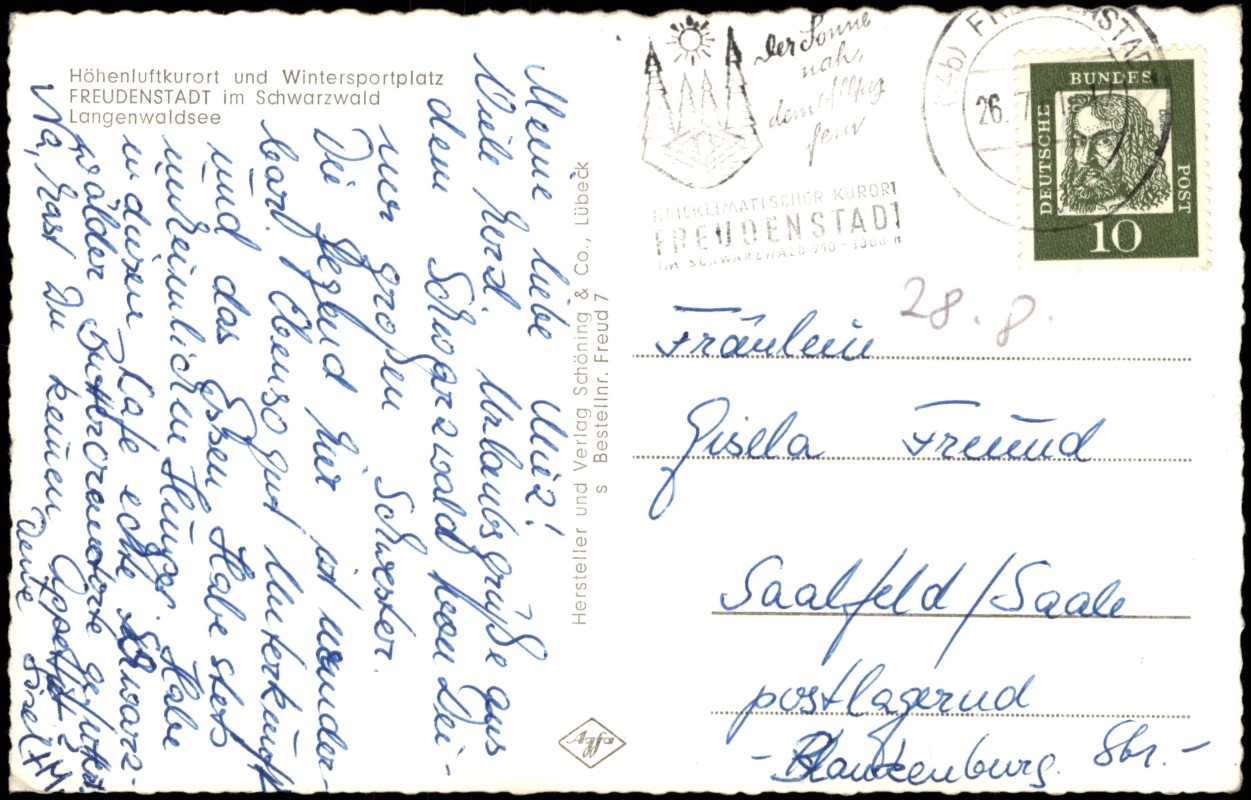 Höhenluftkurort und Wintersportplatz
FREUDENSTADT im Schwarzwald
Langenwaldsee
Meine liebe Miez!
Viele herzl. Urlaubsgrüße aus
dem Schwarzwald von Dei-
ner großen Schwester.
Die Gegend hier ist wunder-
bar. Ebenso gut Unterkunft
und das Essen. Habe stets
unheimlichen Hunger. Habe
in diesem Cafe echte Schwarz-
wälder Buttercremtorte gefuttert.
Na, hast Du keinen Appetit?
Deine
Hersteller und Verlag Schöning & Co., Lübeck
s Bestellnr. Freud 7
Agfa
Der Sonne
nah,
dem Alltag
fern
HEILKLIMATISCHER KURORT
FREUDENSTADT
IM SCHWARZWALD 740-1000 m
FREUDENSTADT
26. 7
DEUTSCHE
BUNDES
POST
10
28. 8.
Fräulein
Gisela Freund
Saalfeld/Saale
postlagernd
- Blankenburg. Sbr. -